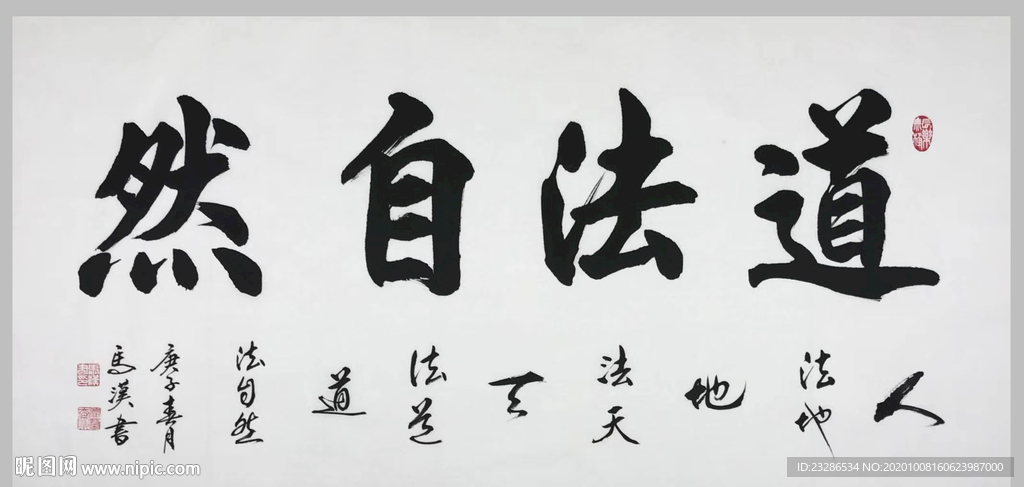 道法自然
人法地
地法天
天法道
道法自然
庚子春月
馬漢書
昵图网 www.nipic.com
ID:23286534 NO:20201008160623987000